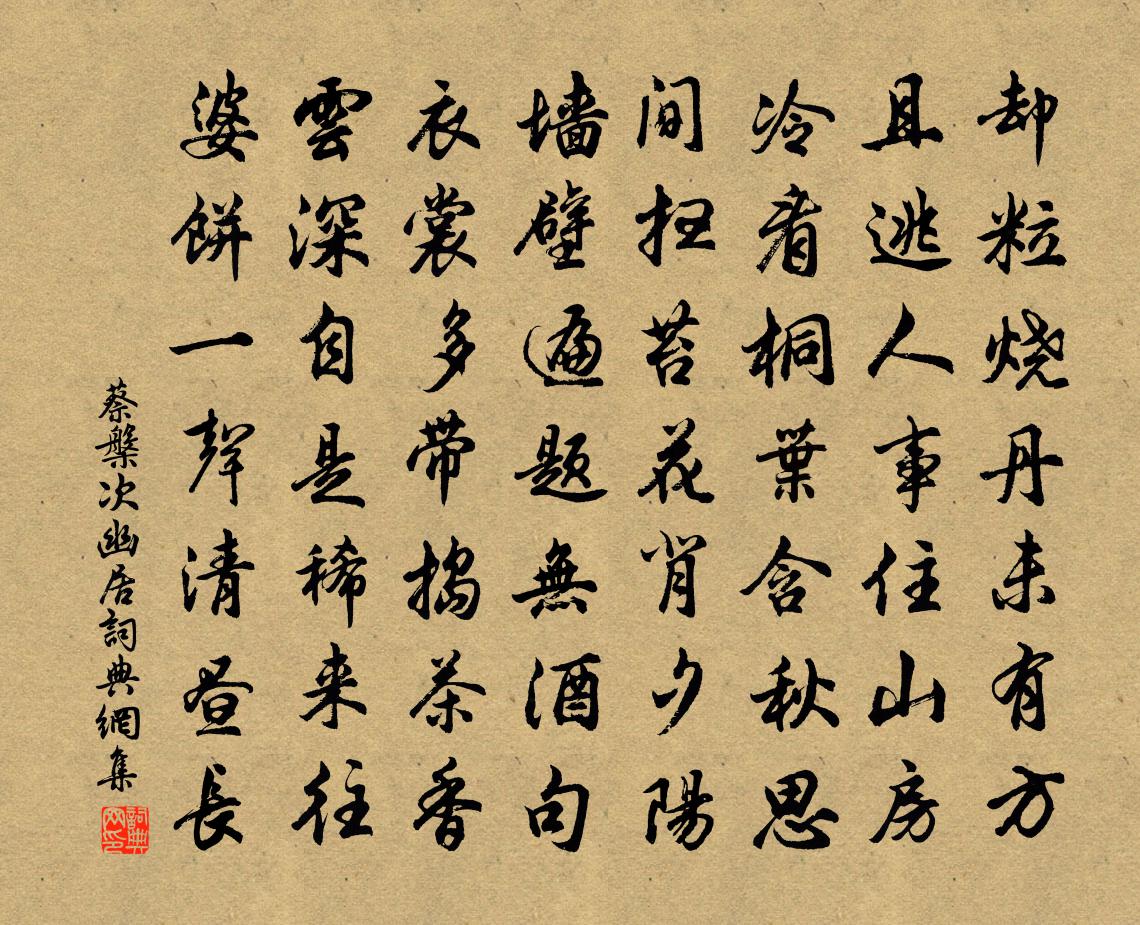 却粒烧丹未有方
且逃人事住山房
冷看桐葉含秋思
间扫苔花背夕陽
墙壁遍题無酒句
衣裳多带捣茶香
雲深自是稀来往
婆餅一聲清昼長
蔡槃次幽居詞典網集
詞典网印